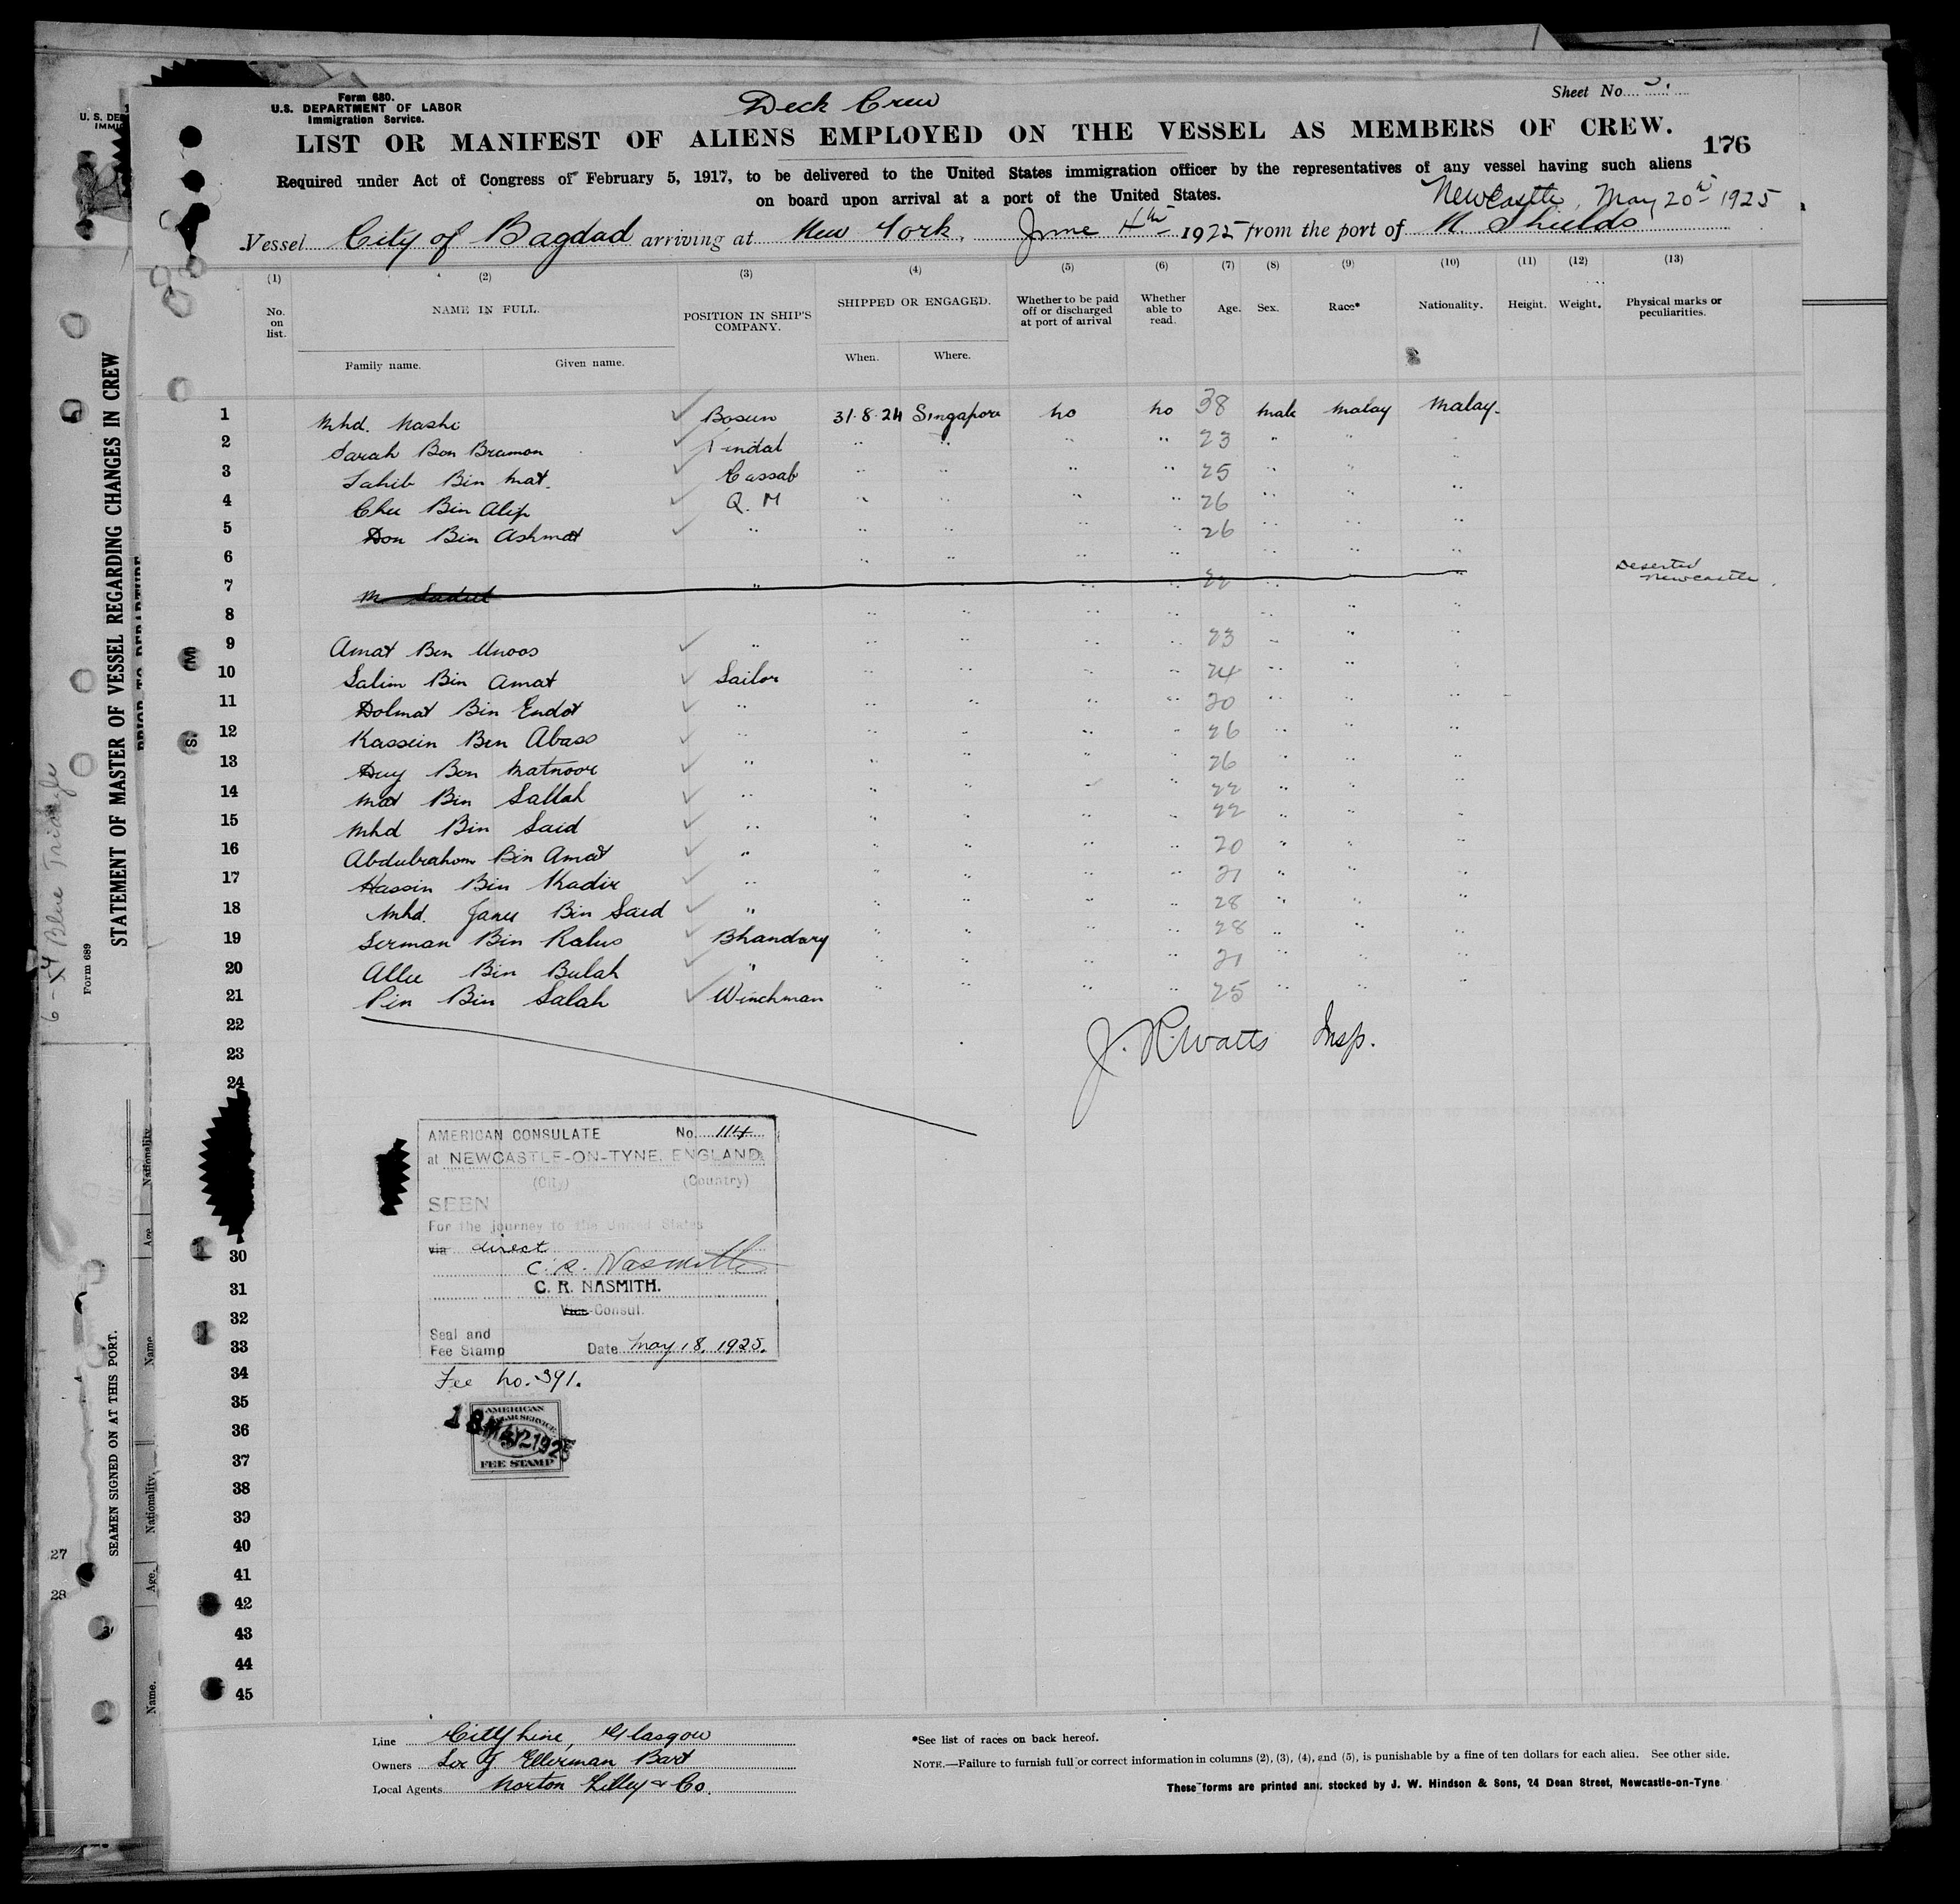 Form 680.
U.S. DEPARTMENT OF LABOR
Immigration Service.
Deck Crew
Sheet No. 3.
LIST OR MANIFEST OF ALIENS EMPLOYED ON THE VESSEL AS MEMBERS OF CREW.
176
Required under Act of Congress of February 5, 1917, to be delivered to the United States immigration officer by the representatives of any vessel having such aliens
on board upon arrival at a port of the United States.
Newcastle, May 20th 1925
Vessel City of Bagdad arriving at New York, June 4th 1925 from the port of N. Shields
(1) (2) (3) (4) (5) (6) (7) (8) (9) (10) (11) (12) (13)
No. on list. NAME IN FULL. POSITION IN SHIP'S COMPANY. SHIPPED OR ENGAGED. Whether to be paid off or discharged at port of arrival Whether able to read. Age. Sex. Race* Nationality. Height. Weight. Physical marks or peculiarities.
Family name. Given name. When. Where.
1 Mhd. Nashi Bosun 31.8.24 Singapore no no 38 male Malay Malay.
2 Sarah Bon Bramon Tindal " " " " 23 " " "
3 Sahib Bin Mat. Cassab " " " " 25 " " "
4 Chee Bin Alip Q. M " " " " 26 " " "
5 Don Bin Ashmat " " " " " 26 " " "
6 " " " " " " "
7 M Sadul " " " 22 " " " Deserted Newcastle.
8 " " " " " " "
9 Amat Ben Unoos " " " " " 23 " " "
10 Salim Bin Amat Sailor " " " " 24 " " "
11 Dolmat Bin Endot " " " " " 20 " " "
12 Kassein Ben Abass " " " " " 26 " " "
13 Duy Bon Matnoor " " " " " 26 " " "
14 Mat Bin Sallah " " " " " 22 " " "
15 Mhd Bin Said " " " " " 22 " " "
16 Abdulrahom Bin Amat " " " " " 20 " " "
17 Hassin Bin Kadir " " " " " 21 " " "
18 Mhd. Janu Bin Said " " " " " 28 " " "
19 Serman Bin Ralus Bhandary " " " " 28 " " "
20 Allee Bin Bulah " " " " " 21 " " "
21 Pin Bin Salah Winchman " " " " 25 " " "
22
23
24
J. R. Watts Insp.
AMERICAN CONSULATE No. 114
at NEWCASTLE-ON-TYNE, ENGLAND.
(City) (Country)
SEEN
For the journey to the United States
via direct
C. R. Nasmith
C. R. NASMITH.
Vice-Consul.
Seal and
Fee Stamp Date May 18, 1925.
Fee No. 391.
AMERICAN
CONSULAR SERVICE
18 MAY 1925
FEE STAMP
30
31
32
33
34
35
36
37
38
39
40
41
42
43
44
45
Line City Line, Glasgow
Owners Sir J. Ellerman Bart
Local Agents Norton Lilley & Co.
*See list of races on back hereof.
NOTE.—Failure to furnish full or correct information in columns (2), (3), (4), and (5), is punishable by a fine of ten dollars for each alien. See other side.
These forms are printed and stocked by J. W. Hindson & Sons, 24 Dean Street, Newcastle-on-Tyne
STATEMENT OF MASTER OF VESSEL REGARDING CHANGES IN CREW
PRIOR TO DEPARTURE
Form 689
6-X4 Blue Triangle
SEAMEN SIGNED ON AT THIS PORT.
Nationality
Age
Name
Nationality.
Age.
Name.
27
28